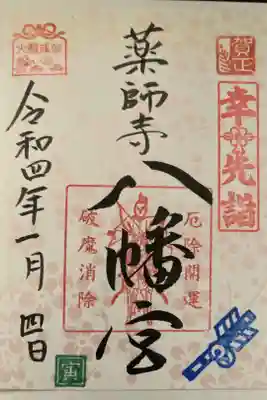 賀正
幸先詣
薬師寺
八幡宮
厄除開運
破魔消除
令和四年一月四日
寅